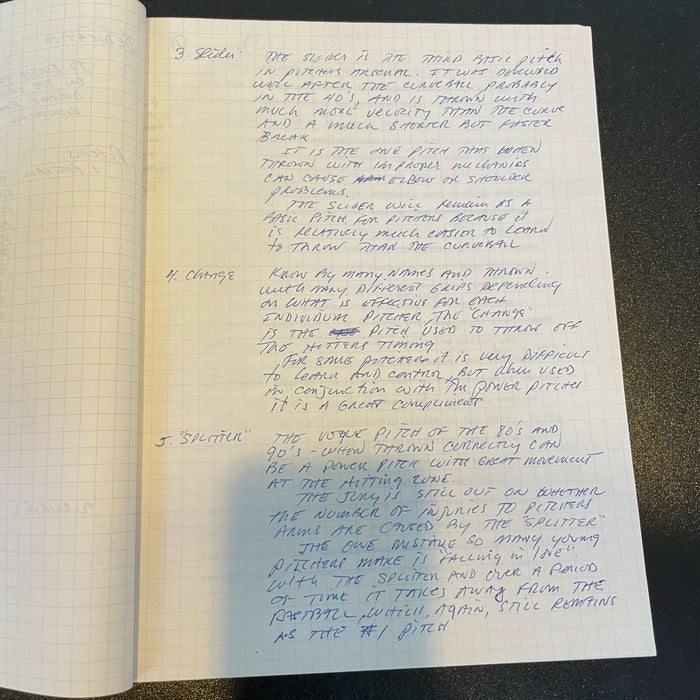 3. Slider: THE SLIDER IS THE THIRD BASIC PITCH
IN PITCHERS ARSENAL. IT WAS DEVELOPED
WELL AFTER THE CURVEBALL PROBABLY
IN THE 40'S, AND IS THROWN WITH
MUCH MORE VELOCITY THAN THE CURVE
AND A MUCH SHORTER BUT FASTER
BREAK.
IT IS THE ONE PITCH THAT WHEN
THROWN WITH IMPROPER MECHANICS
CAN CAUSE ELBOW OR SHOULDER
PROBLEMS.
THE SLIDER WILL REMAIN AS A
BASIC PITCH FOR PITCHERS BECAUSE IT
IS RELATIVELY MUCH EASIER TO LEARN
TO THROW THAN THE CURVEBALL
4. CHANGE KNOW BY MANY NAMES AND THROWN
WITH MANY DIFFERENT GRIPS DEPENDING
ON WHAT IS EFFECTIVE FOR EACH
INDIVIDUAL PITCHER, THE "CHANGE"
IS THE PITCH USED TO THROW OFF
THE HITTERS TIMING
FOR SOME PITCHERS IT IS VERY DIFFICULT
TO LEARN AND CONTROL, BUT WHEN USED
IN CONJUNCTION WITH THE POWER PITCHES
IT IS A GREAT COMPLIMENT
5. "SPLITTER" THE VOGUE PITCH OF THE 80'S AND
90'S - WHEN THROWN CORRECTLY CAN
BE A POWER PITCH WITH GREAT MOVEMENT
AT THE HITTING ZONE.
THE JURY IS STILL OUT ON WHETHER
THE NUMBER OF INJURIES TO PITCHERS
ARMS ARE CAUSED BY THE "SPLITTER"
THE ONE MISTAKE SO MANY YOUNG
PITCHERS MAKE IS "FALLING IN LOVE"
WITH THE SPLITTER AND OVER A PERIOD
OF TIME IT TAKES AWAY FROM THE
FASTBALL, WHICH, AGAIN, STILL REMAINS
AS THE #1 PITCH